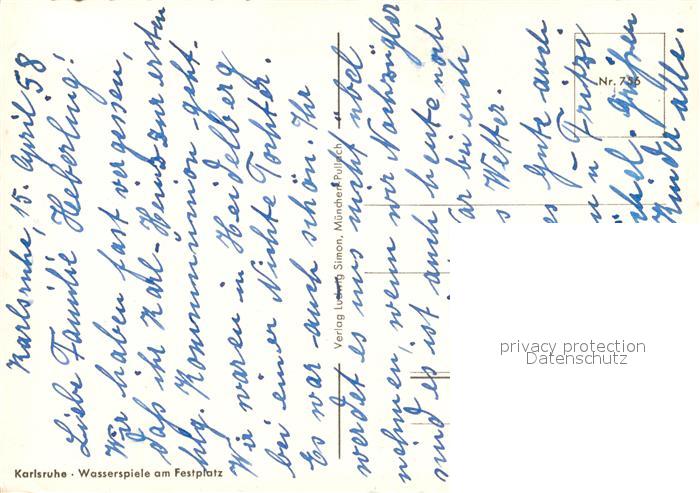 Karlsruhe, 15. April 58
Liebe Familie Heberling!
Wir haben fast vergessen,
daß ihr Karl-Heinz zur ersten
hlg. Kommunion geht.
Wir waren in Heidelberg
bei einer Nichte Tochter.
Es war auch schön. Ihr
werdet es uns nicht übel
nehmen, wenn wir Nachzügler
sind es ist auch heute noch
ar bei euch
s Wetter.
es Gute auch
u Fritzi
viel. Grüßen
Kinder alle.
Verlag Ludwig Simon, München-Pullach
Nr. 756
Karlsruhe · Wasserspiele am Festplatz
privacy protection
Datenschutz